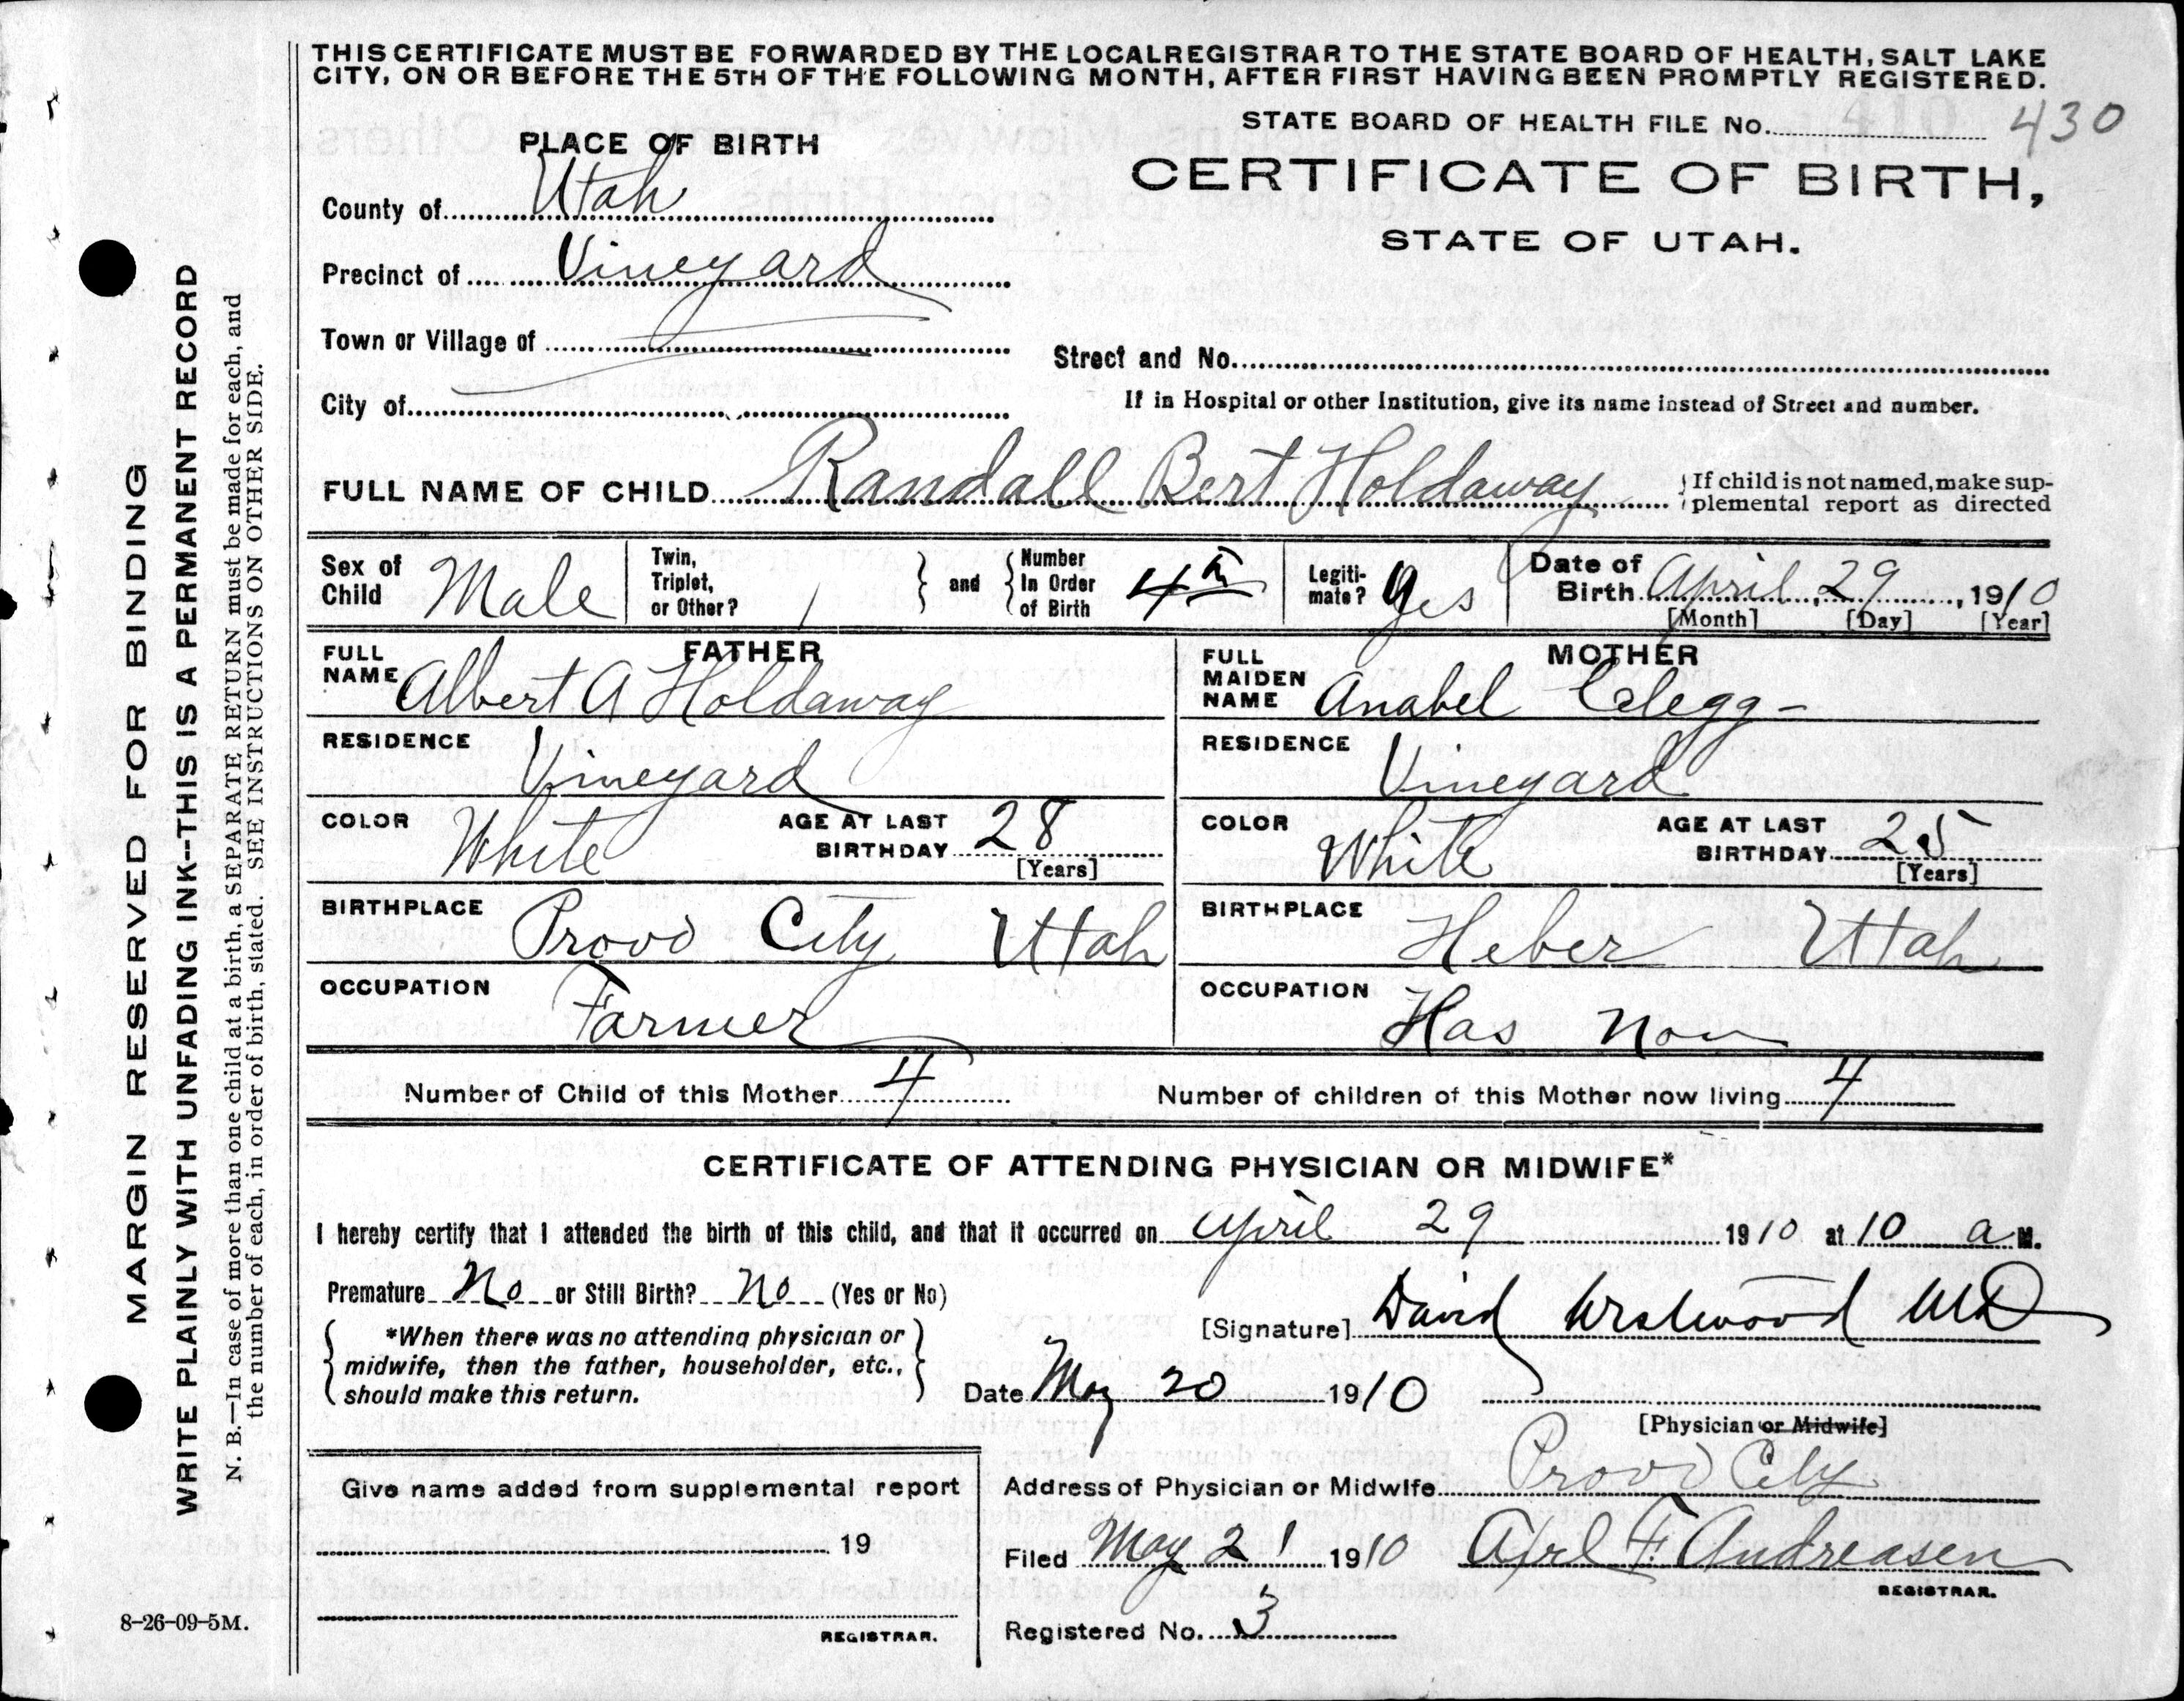 THIS CERTIFICATE MUST BE FORWARDED BY THE LOCAL REGISTRAR TO THE STATE BOARD OF HEALTH, SALT LAKE
CITY, ON OR BEFORE THE 5TH OF THE FOLLOWING MONTH, AFTER FIRST HAVING BEEN PROMPTLY REGISTERED.
STATE BOARD OF HEALTH FILE No. 430
PLACE OF BIRTH
CERTIFICATE OF BIRTH,
STATE OF UTAH.
County of Utah
Precinct of Vineyard
Town or Village of
Street and No.
City of
If in Hospital or other Institution, give its name instead of Street and number.
FULL NAME OF CHILD Randall Bert Holdaway
If child is not named, make sup-
plemental report as directed
Sex of Child Male
Twin, Triplet, or Other?
and
Number In Order of Birth 4th
Legiti-mate? Yes
Date of Birth April 29, 1910
[Month] [Day] [Year]
FATHER
FULL NAME Albert A Holdaway
RESIDENCE Vineyard
COLOR White
AGE AT LAST BIRTHDAY 28
[Years]
BIRTHPLACE Provo City Utah
OCCUPATION Farmer
MOTHER
FULL MAIDEN NAME Anabel Clegg -
RESIDENCE Vineyard
COLOR White
AGE AT LAST BIRTHDAY 25
[Years]
BIRTHPLACE Heber Utah
OCCUPATION Has Non
Number of Child of this Mother 4
Number of children of this Mother now living 4
CERTIFICATE OF ATTENDING PHYSICIAN OR MIDWIFE*
I hereby certify that I attended the birth of this child, and that it occurred on April 29 1910 at 10 a M.
Premature No or Still Birth? No (Yes or No)
[Signature] David Westwood MD
*When there was no attending physician or
midwife, then the father, householder, etc.,
should make this return.
Date May 20 1910
[Physician or Midwife]
Address of Physician or Midwife Provo City
Give name added from supplemental report
19
REGISTRAR.
Filed May 21 1910 F Andreasen
REGISTRAR.
Registered No. 3
MARGIN RESERVED FOR BINDING
WRITE PLAINLY WITH UNFADING INK--THIS IS A PERMANENT RECORD
N. B.—In case of more than one child at a birth, a SEPARATE RETURN must be made for each, and
the number of each, in order of birth, stated. SEE INSTRUCTIONS ON OTHER SIDE.
8-26-09-5M.